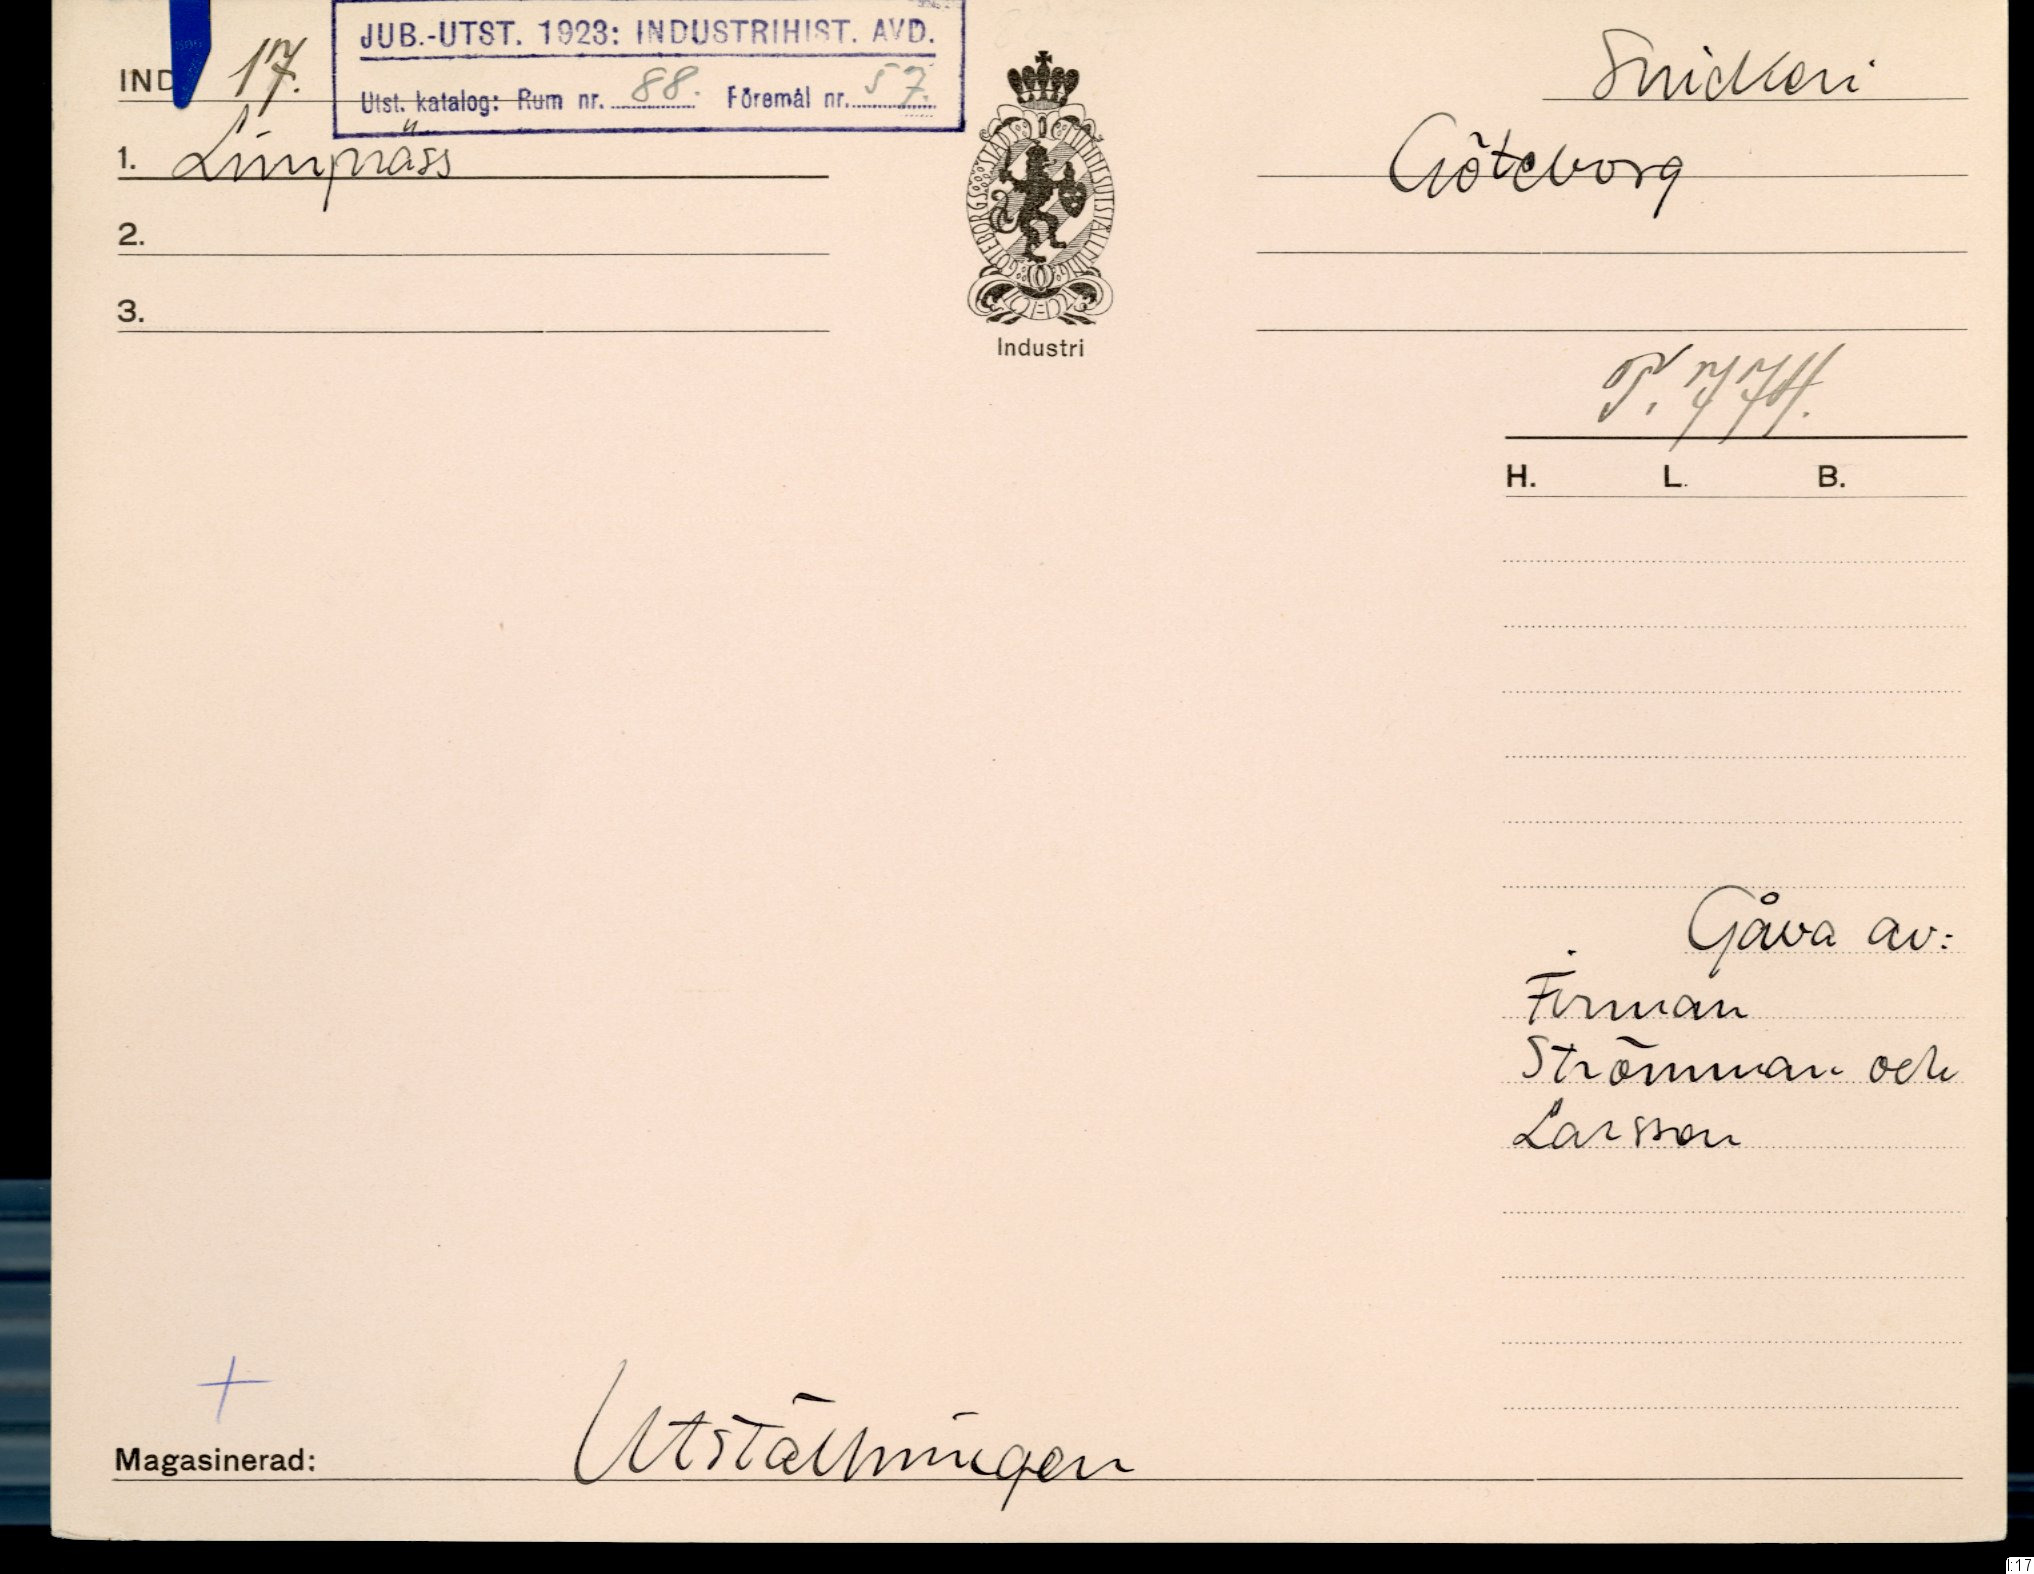 JUB.-UTST. 1923: INDUSTRIHIST. AVD.
Utst. katalog: Rum nr. 88. Föremål nr. 57.
IND 17.
Snickeri
1. Limpräss
Göteborg
2.
3.
GÖTEBORGS STADS MINNESUTSTÄLLNING
Industri
H. L. B.
Gåva av:
Firman
Strömman och
Larsson
Magasinerad: Utställningen
I:17